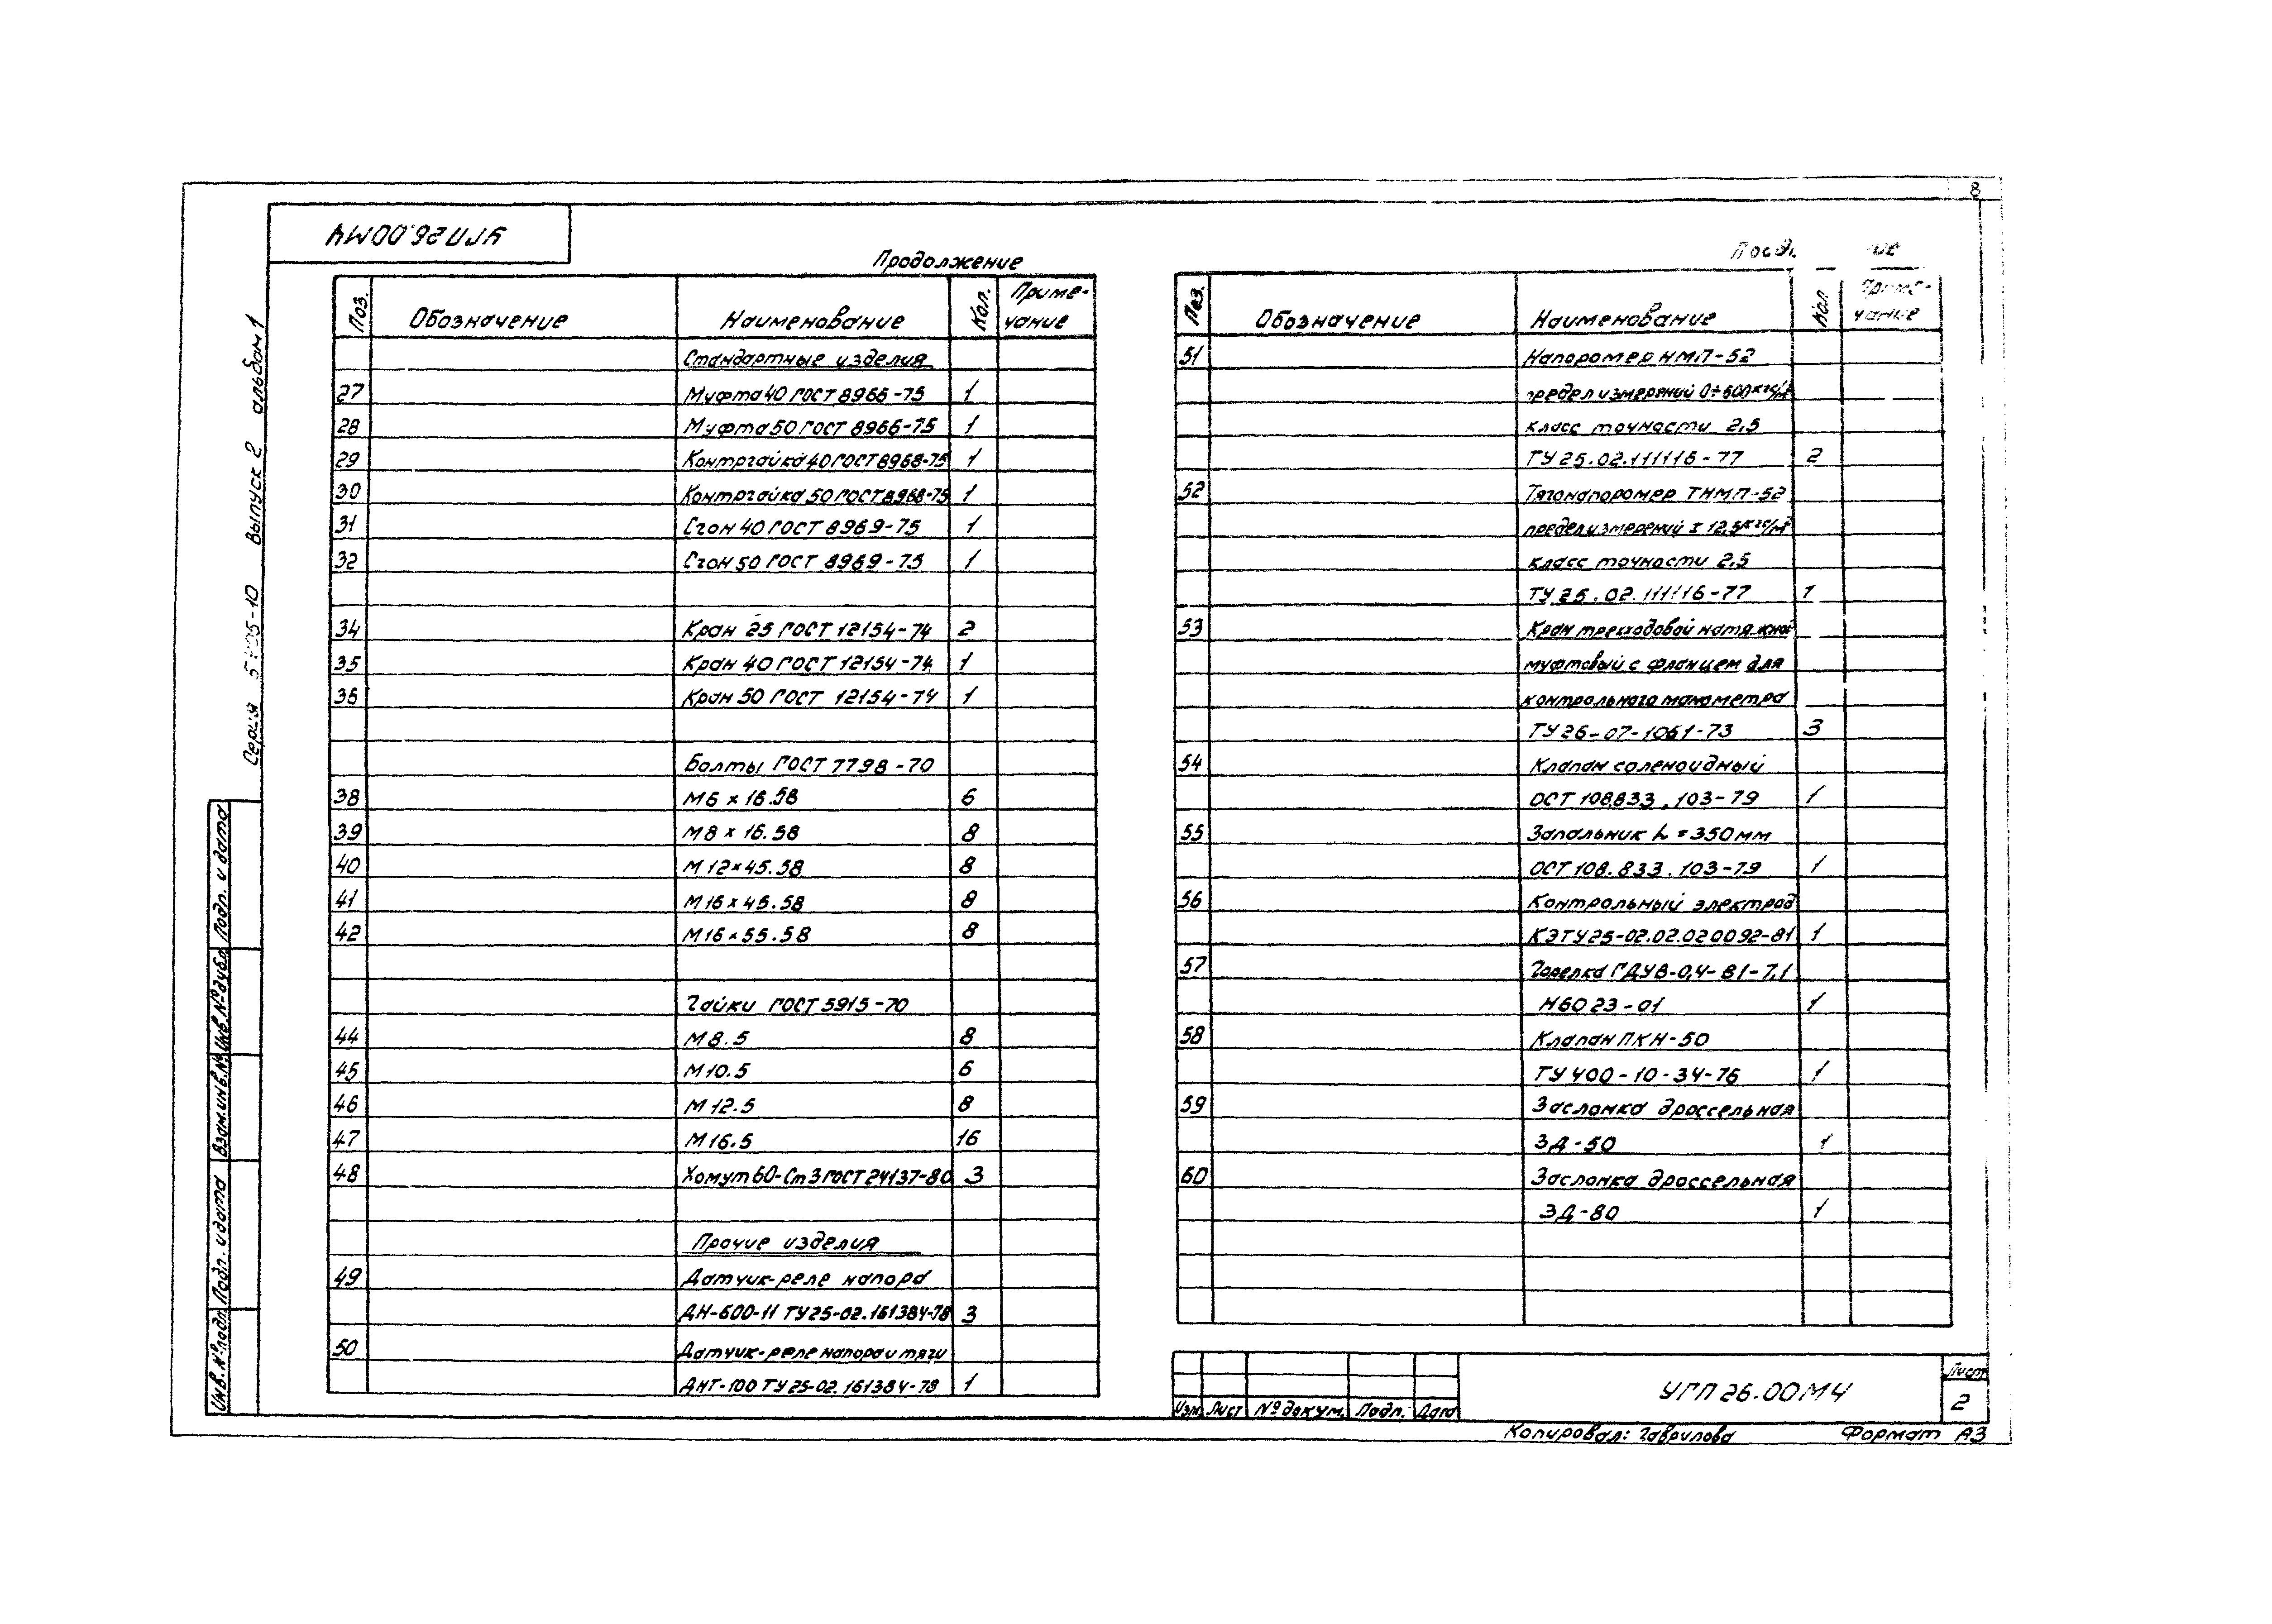 8
УГП26.00МЧ
Продолжение
Поз.
Обозначение
Наименование
Кол.
Приме-
чание
Стандартные изделия
27 Муфта 40 ГОСТ 8966-75 1
28 Муфта 50 ГОСТ 8966-75 1
29 Контргайка 40 ГОСТ 8968-75 1
30 Контргайка 50 ГОСТ 8968-75 1
31 Сгон 40 ГОСТ 8969-75 1
32 Сгон 50 ГОСТ 8969-75 1
34 Кран 25 ГОСТ 12154-74 2
35 Кран 40 ГОСТ 12154-74 1
36 Кран 50 ГОСТ 12154-74 1
Болты ГОСТ 7798-70
38 М6 х 16.58 6
39 М8 х 16.58 8
40 М12х45.58 8
41 М16х45.58 8
42 М16х55.58 8
Гайки ГОСТ 5915-70
44 М8.5 8
45 М10.5 6
46 М12.5 8
47 М16.5 16
48 Хомут 60-Ст3 ГОСТ 24137-80 3
Прочие изделия
49 Датчик-реле напора
ДН-600-11 ТУ25-02.161384-78 3
50 Датчик-реле напора и тяги
ДНТ-100 ТУ25-02.161384-78 1
Поз.
Обозначение
Наименование
Кол
Приме-
чание
51 Напоромер НМП-52
предел измерений 0÷600кгс/м²
класс точности 2,5
ТУ 25.02.111116-77 2
52 Тягонапоромер ТНМП-52
предел измерений ±12,5кгс/м²
класс точности 2,5
ТУ 25.02.111116-77 1
53 Кран трехходовой натяжной
муфтовый с фланцем для
контрольного манометра
ТУ 26-07-1061-73 3
54 Клапан соленоидный
ОСТ 108.833.103-79 1
55 Запальник L=350мм
ОСТ 108.833.103-79 1
56 Контрольный электрод
КЭ ТУ25-02.02.020092-81 1
57 Горелка ГДУВ-0,4-В1-7.1
Н6023-01 1
58 Клапан ПКН-50
ТУ 400-10-34-76 1
59 Заслонка дроссельная
ЗД-50 1
60 Заслонка дроссельная
ЗД-80 1
Изм Лист № докум. Подп. Дата
УГП 26.00МЧ
Лист
2
Копировал: Гаврилова Формат А3
Серия выпуск 2 альбом 1
Подп. и дата
Инв.№дубл
Взам.инв.№
Подп. и дата
Инв.№подл